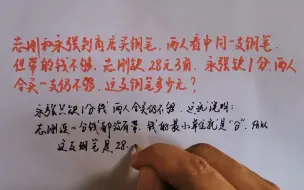 志刚和永强到商店买钢笔,两人看中同一支钢笔,
但带的钱不够.志刚缺28元3角,永强缺1分,两人
合买一支仍不够.这支钢笔多少元?
永强只缺1分钱,两人合买仍不够,这就说明:
志刚连一分钱都没有带,钱的最小单位就是"分",所以
这支钢笔是28.